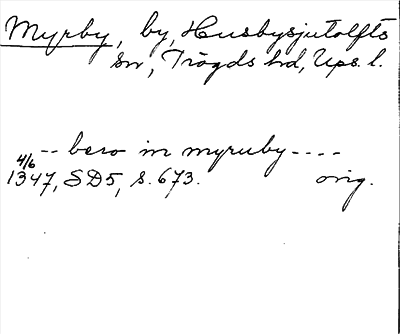 Myrby, by, Husbysjutolfts
sn, Trögds hd, Ups. l.
-- bero in myruby ----
4/6
1347, SD5, s. 673. orig.